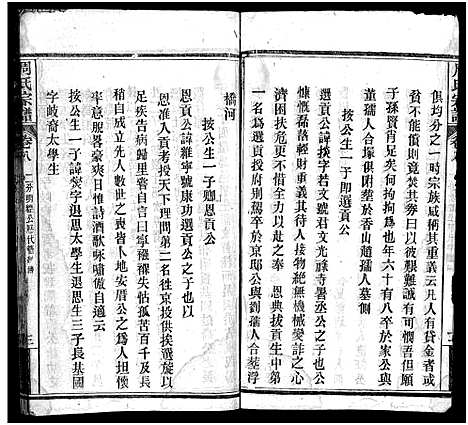 俱均分之一時宗族咸稱其重義云凡人有貸金者或
不能償則竟焚其劵曰以彼艱難誠有可憫吾但願
子孫賢肖足矣何拘拘為也年六十有八卒於家公與
董孺人合塚俱囬塟於香山趙孺人墓側
選貢公諱掞字若文號君文光祿寺署丞公之子以
慷慨磊落輕財重義其待人接物絕無機械變詐之心
濟困扶危更不惜全力以赴之奉 恩典拔貢生中第
一名為選貢時府別駕卒於京邸公與劉孺人合塟浮
橋河
按公生一子卽恩貢公
恩貢公諱維寧號康功選貢公之子也以
恩准入貢考授天下理問第二名往京授供挨選旋以
足疾告病歸里嘗自言曰寧襁褓失怙孤苦百千及長
稍自成立先人數世之喪皆卜地安厝公之為人大
率意服畧豪爽日惟詩酒歌咏嘯傲自適云
按公生一子諱燢字退思太學生退思生三子長基國
字岐裔太學生
周氏宗譜
卷八
三
周氏宗譜